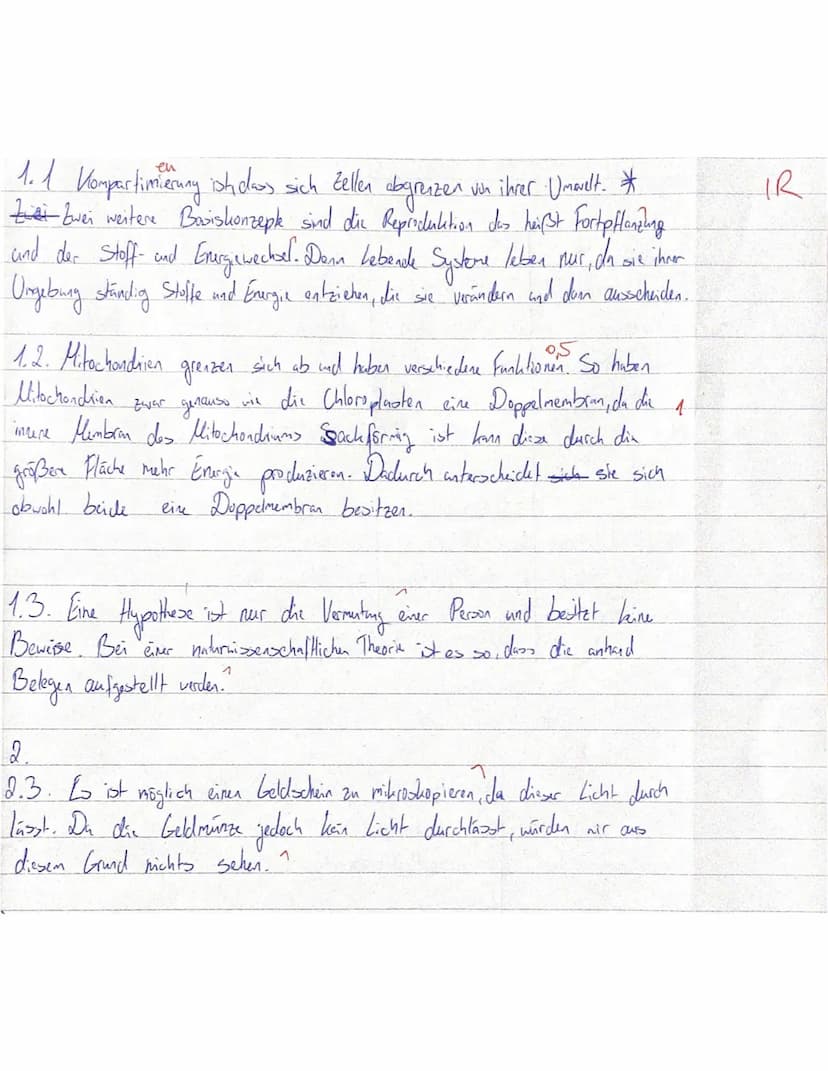 en
1.1 Kompartimierung ist, dass sich Zellen abgrenzen von ihrer Umwelt. * 1R
Zwei Zwei weitere Basiskonzepte sind die Reproduktion das heißt Fortpflanzung 1
und der Stoff- und Energiewechsel. 1 Denn Lebende Systeme leben nur, da sie ihrer
Umgebung ständig Stoffe und Energie entziehen, die sie verändern und dann ausscheiden.
1.2. Mitochondrien grenzen sich ab und haben verschiedene Funktionen. 0,5 So haben
Mitochondrien zwar genauso wie die Chloroplasten eine Doppelmembran, da die 1
innere Membran des Mitochondriums Sackförmig ist kann diese durch die
größere Fläche mehr Energie produzieren. Dadurch unterscheidet sich sie sich
obwohl beide eine Doppelmembran besitzen.
1.3. Eine Hypothese ist nur die Vermutung 1 einer Person und besitzt keine
Beweise. Bei einer naturwissenschaftlichen Theorie ist es so, dass die anhand
Belegen aufgestellt werden. 1
2.
2.3. Es ist möglich einen Geldschein zu mikroskopieren, 1 da dieser Licht durch
lässt. Da die Geldmünze jedoch kein Licht durchlässt, würden wir aus
diesem Grund nichts sehen. 1